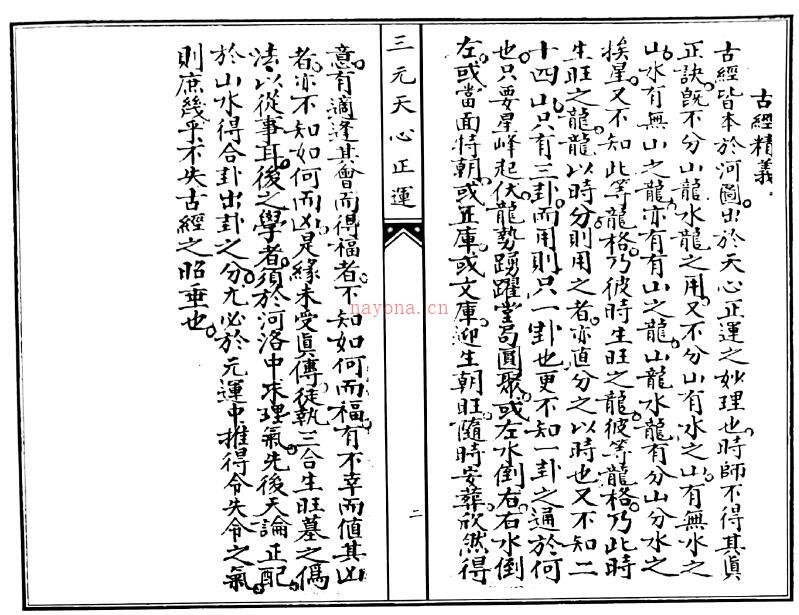 古經精義
古經皆本於河圖出於天心正運之妙理也時師不得其真
正訣既不分山龍水龍之用又不分山有水之山有無水之
山水有無山之龍亦有有山之龍山龍水龍有分山分水之
挨星又不知此等龍格乃彼時生旺之龍彼等龍格乃此時
生旺之龍龍以時分則用之者亦直分之以時也又不知二
十四山只有三卦而用則只一卦也更不知一卦之通於何
也只要星峰起伏龍勢踴躍堂局圓聚或左水倒右右水倒
左或當面特朝或正庫或文庫迎生朝旺隨時安葬欣然得
三元天心正運
二
意有適逢其會而得福者不知如何而福有不幸而值其凶
者亦不知如何而凶是緣未受眞傳徒執三合生旺墓之僞
法以從事耳後之學者須於河洛中求理氣先後天論正配
於山水得合卦出卦之分尤必於元運中推得令失令之氣
則庶幾乎不失古經之昭垂也
nayona.cn